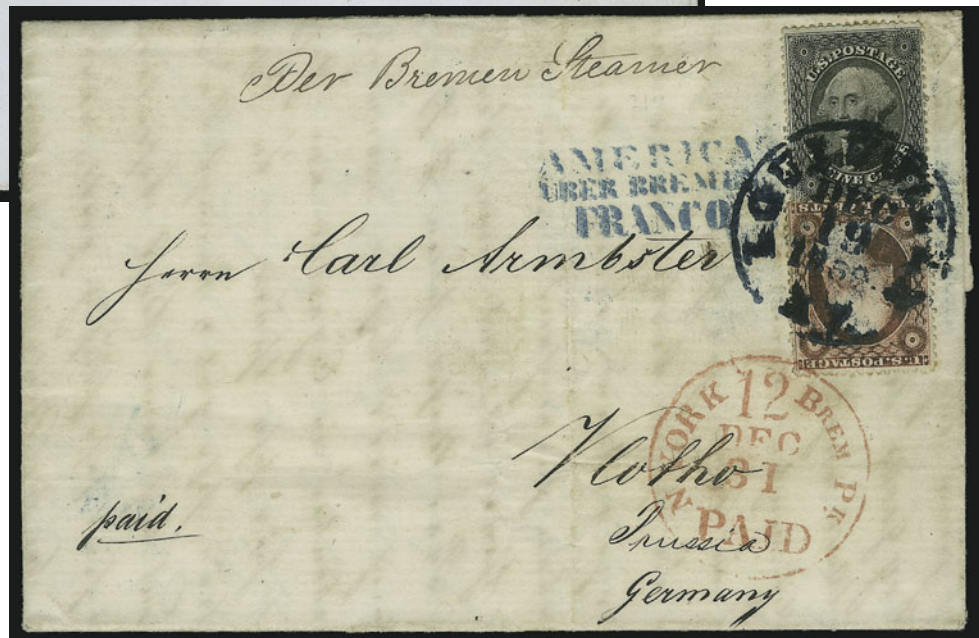 Per Bremen Steamer
U.S. POSTAGE
AMERICA
ÜBER BREMEN
FRANCO
LOUISVILLE
DEC
19
KY.
Herrn Carl Armbster
U.S. POSTAGE
N. YORK BREM Pk.
12
DEC
31
PAID
Vlotho
Prussia
Germany
paid.